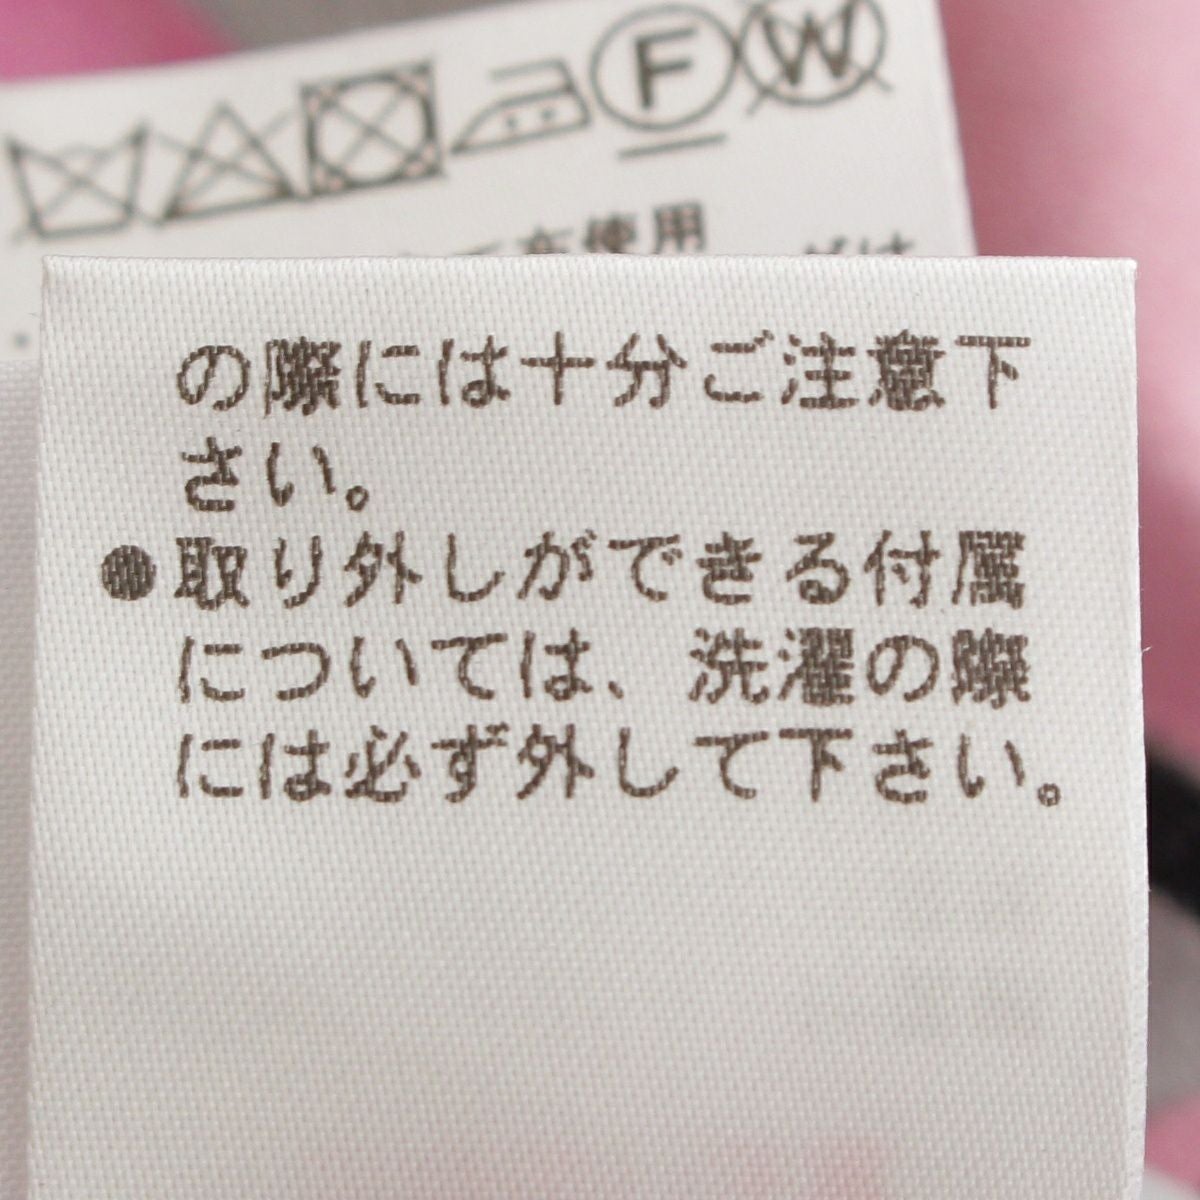 F W
使用
の際には十分ご注意下
さい。
●取り外しができる付属
については、洗濯の際
には必ず外して下さい。